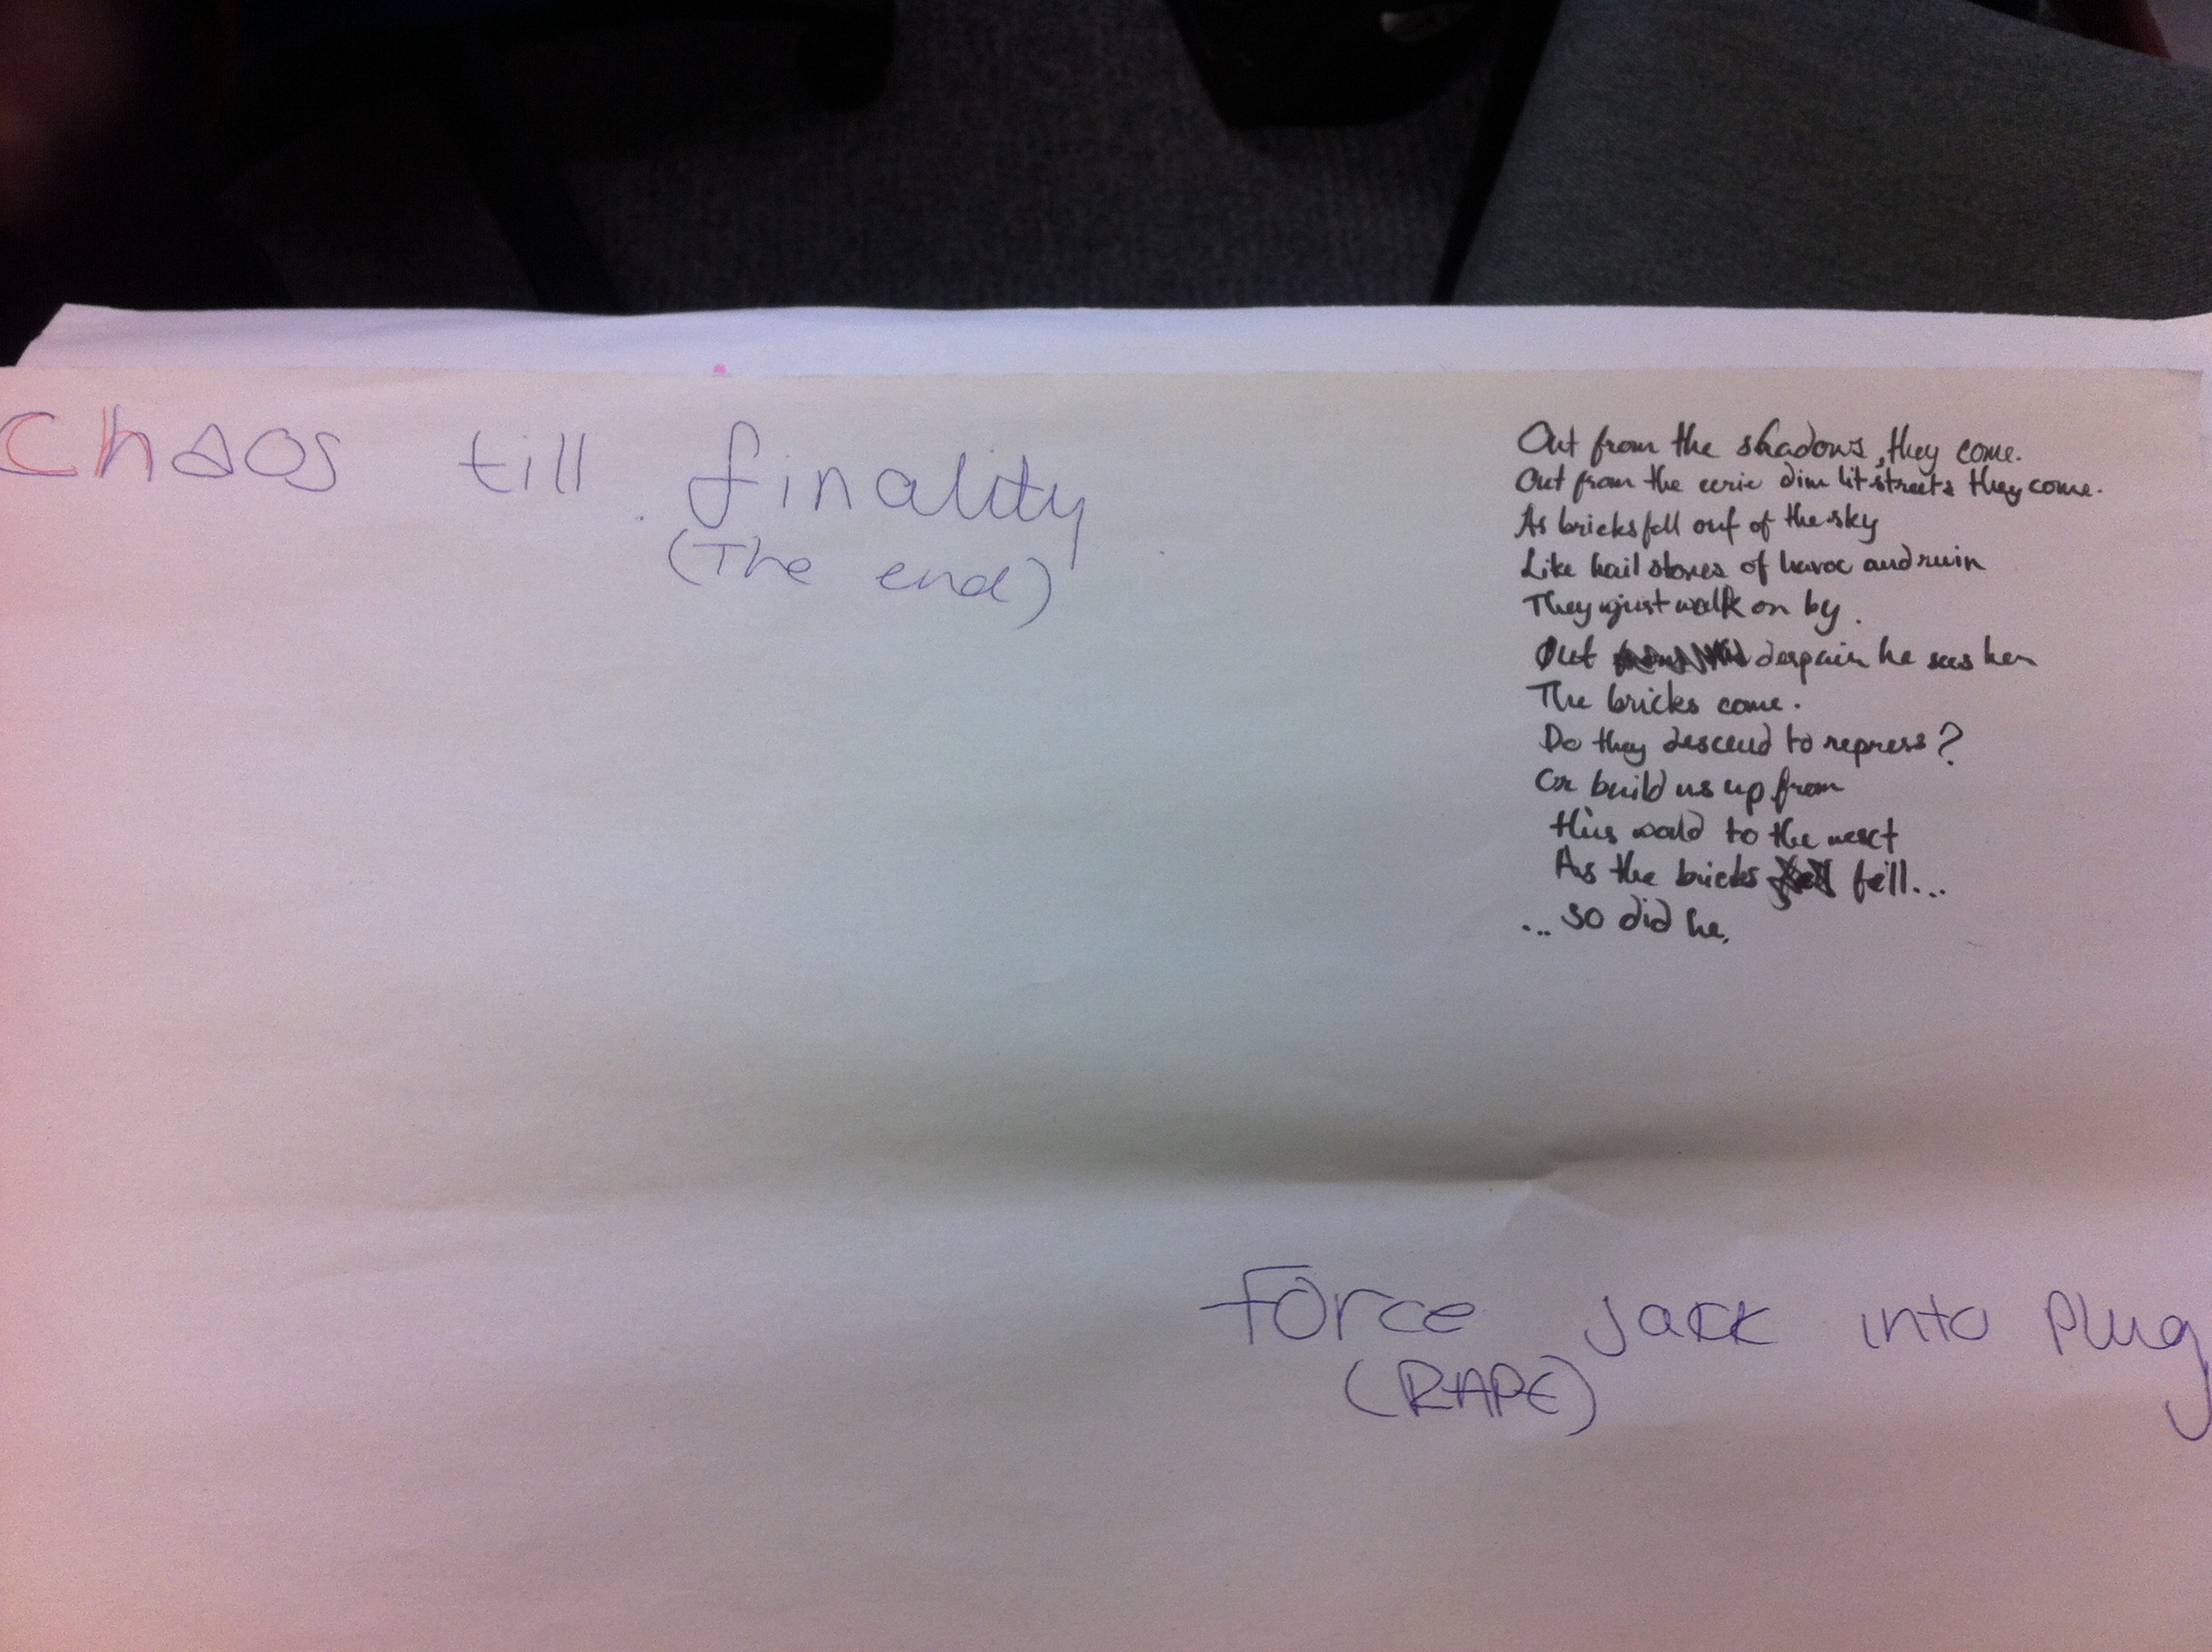 Chaos till finality
(The end)
Out from the shadows, they come.
Out from the eerie dim lit streets they come.
As bricks fell out of the sky
Like hail stones of havoc and ruin
They just walk on by.
Out despair he sees her
The bricks come.
Do they descend to repress?
Or build us up from
this world to the next
As the bricks fell...
... so did he.
Force jack into plug
(RAPE)